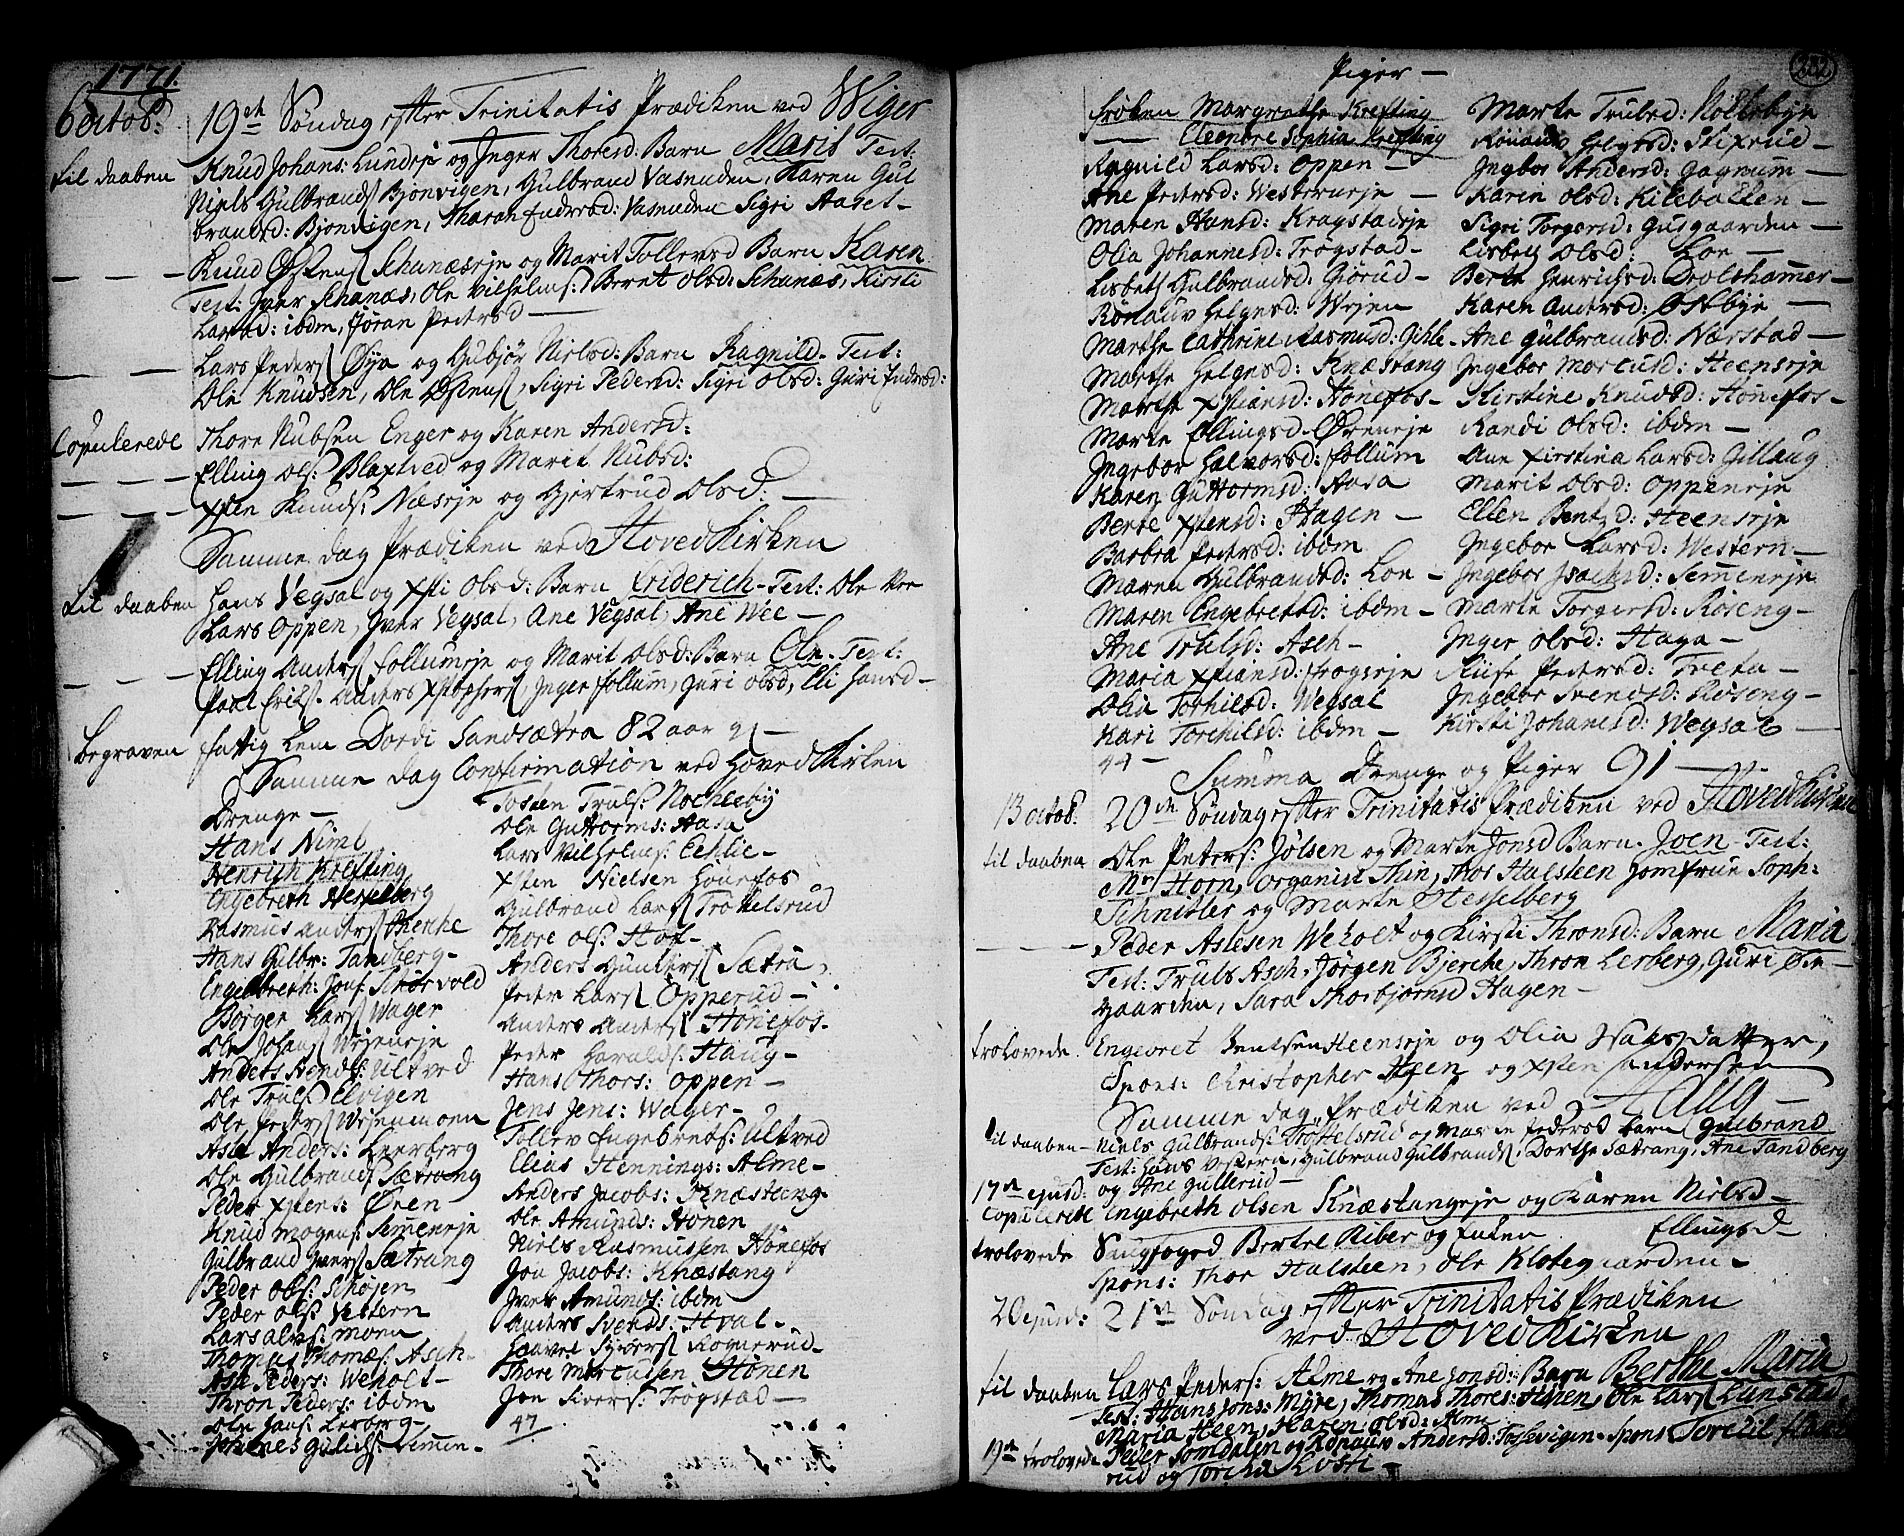 1771.
6 octob: 19de Søndag efter Trinitatis Prædiken ved Wiger
til daaben Knud Johans: Lundesje og Inger Thoresd: Barn Marit Test:
Niels Gulbrands Bjonvigen, Gulbrand Vasenden, Karen Gul
brandsd: Bjonvigen, Tharan Endresd: Vasenden Sigri Aaset-
Knud Østens Schanæseje og Marit Tollevsd Barn Karen
Test: Iver Schanæs, Ole Vilhelms: Beret Olsd: Schanæs, Kirsti
Larsd: ibdm, Jøran Pedersd
Lars Peders Øya og Gubjør Nielsd: Barn Ragnild- Test:
Ole Knudsen, Ole Østens, Sigri Pedersd: Sigri Olsd: Guri Endresd:
Copulerede Thore Nubsen Enger og Karen Andersd:
Elling Ols: Blaxtved og Marit Nubsd:
Xsten Knuds: Næseje og Gjertrud Olsd:
Samme dag Prædiken ved HovedKirken
til daaben Hans Vegsal og Xsti Olsd: Barn Friderich- Test: Ole
Lars Oppen, Iver Vegsal, Ane Vegsal, Ane Wee
Elling Anders Follumeje og Marit Olsd: Barn Ole- Test:
Poul Eriks: Anders Xstophers, Inger Follum, Guri Olsd, Eli Hansd
begraven fattig Lem Dordi Sandsætra 82 aar
Samme dag Confirmation ved HovedKirken
Drenge
Hans Niml
Henrich Krefting
Engebreth Hesselberg
Rasmus Anders Bherche
Hans Gulbr: Tandberg-
Engelbreth: Jons Schørvold
Børger Lars Wager
Ole Johans Wejeneje
Anders Aends: Ultved
Ole Truls Elvigen
Ole Peders Wejenmoen
Asle Anders: Leerberg
Ole Gulbrands Sætrang
Peder Xstens: Øren
Knud Mogens: Semmeneje
Gulbrand Ivers Sætrang
Peder Ols: Schøjen
Peder Ols: Vestern
Lars Alvs: Moen
Thomas Thomæs: Asch-
Asle Peders: Weholt-
Thron Peders: ibdm
Ole Jans: Lerberg-
Johannes Gulichs Semmen-
Tosten Truls: Nochleby
Ole Guttorms: Aasa
Lars Vilhelms: Echlie-
Xsten Nielsen Honefos
Gulbrand Lars Trøgelsrud
Thore Ols: Hof-
Anders Gunders Sætra
Peder Lars Opperud-
Anders Anders Honefos-
Peder Haralds: Haug-
Hans Thors: Oppen-
Jens Jens: Wager-
Tollev Engebrets: Ultved
Elias Hennings: Alme-
Anders Jacobs: Knæstang-
Ole Amunds: Hønen
Niels Rasmussen Hønefos
Jon Jacobs: Knæstang
Iver Amunds: ibdm
Anders Svends: Hval-
Haavel Syvers Rognerud-
Thore Marcussen Hønen
Jon Sivers: Trøgstad-
47
232
Piger-
Frøken Margrethe Krefting
Eleonore Sophia Krefting
Ragnild Larsd: Oppen
Ane Pedersd: Westerneje
Maren Hansd: Kragstadeje
Olia Johannesd: Trøgstad-
Lisbeth Gulbrandsd: Gjørud-
Rønauv Helgesd: Wejen
Marthe Cathrine Rasmusd: Gihle-
Marthe Helgesd: Knæstang
Marthe Xstiansd: Hønefos-
Marte Ellingsd- Øreneje
Ingebor Halvorsd: Follum
Karen Guttormsd: Aasa
Berte Xstensd: Hagen
Barbra Pedersd: ibdm
Maren Gulbrandsd: Loe-
Maren Engebretsd: ibdm-
Ane Trulsd: Asch-
Maria Xstiansd: Frogeje
Olia Torkilsd: Wegsal
Kari Torchilsd: ibdm-
44
Marte Trulsd: Nøklebye
Rønauv Helgesd: Stixrud-
Ingbor Andersd: Gagnum-
Karin Olsd: Kilebakken-
Sigri Torgersd: Gusgaarden-
Lisbeth Olsd: Loe-
Berte Henrichsd: Drolshammer-
Karen Andersd: Østbye
Ane Gulbrandsd: Nærstad-
Ingebor Marcusd: Heenseje
Kirstine Knudsd: Hønefos-
Randi Olsd: ibdm-
Ane Kirstina Larsd: Gillaug
Marit Olsd: Oppeneje
Ellen Bentsd: Heenseje
Ingebor Larsd: Western-
Ingebor Isachsd: Semmeneje
Marte Torgersd: Roseng-
Inger Olsd: Haga-
Siise Pedersd: Treta-
Ingebor Svendsd: Roseng-
Kirsti Johannesd: Wegsal
Summa Drenge og Piger 91
13 octob. 20de Søndag efter Trinitatis Prædiken ved HovedKirken
til daaben Ole Peters: Jølsen og Marte Jonsd Barn. Joen- Test:
Mr Horn, Organist Thin, Thor Halsteen Jomfrue Soph:
Schnitler og Marte Hesselberg
Peder Aslesen Weholt og Kirsti Thronsd: Barn Maria
Test: Truls Asch, Jørgen Bjerche, Thron Lerberg, Guri Øde-
gaarden, Sara Thorbjørnsd Hagen-
trolovede. Engebret Bentsen Heenseje og Olia Isaksdatter,
Spons: Christopher Heen og Xsten Andersen
Samme dag Prædiken ved Haug-
til daaben- Niels Gulbrands: Trøgelsrud og Maren Pedersd Barn Gulbrand
Test: Hans Vestern, Gulbrand Gulbrands, Dorthe Sætrang, Ane Tandberg
og Ane Gullerud-
17de ejusd: Copulerede Engebreth Olsen Knæstangeje og Karen Nielsd-
trolovede Saugfoged Bertel Riber og Enken Ellingsd-
Spons: Thor Halsteen, Ole Klokegaarden-
20 ejusd: 21de Søndag efter Trinitatis Prædiken
ved HovedKirken
til daaben Lars Peders: Alme og Ane Jonsd: Barn Berthe Maria
Test: Hans Jons: Myre, Thomas Thores: Hønen, Ole Lars Lunstad
Maria Heen, Karen Olsd: Alme
19de trolovede Peder Somdalen og Rønauv Andersd: Tossevigen- Spons Tore til
rud og Torchil Losti-